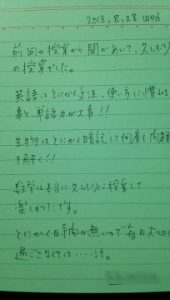 2013.8.28 wed
前回の授業から間があいて、久しぶり
の授業でした。
英語はとにかく文法、使い方に慣れる
事と、単語力が大事!!
生物はとにかく暗記して何度も問題
を解く!!
数学は本当に久しぶりに授業して
楽しかったです。
とにかく時間が無いので毎日大切に
過ごさなくては……。